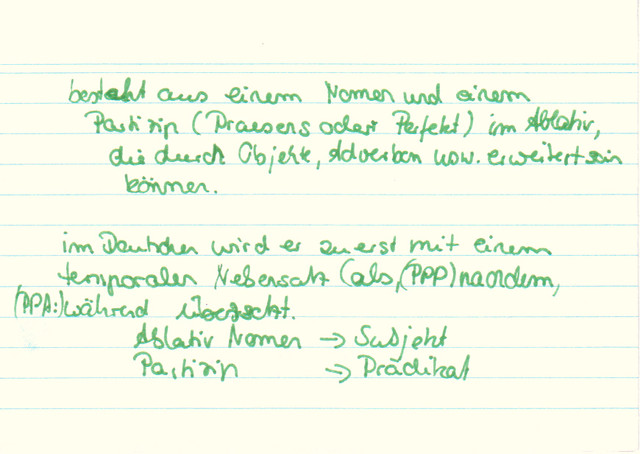 besteht aus einem Nomen und einem
Partizip (Praesens oder Perfekt) im Ablativ,
die durch Objekte, Adverbien usw. erweitert sein
können.
im Deutschen wird er zuerst mit einem
temporalen Nebensatz (als, (PPP) nachdem,
(PPA:) während übersetzt.
Ablativ Nomen → Subjekt
Partizip → Prädikat